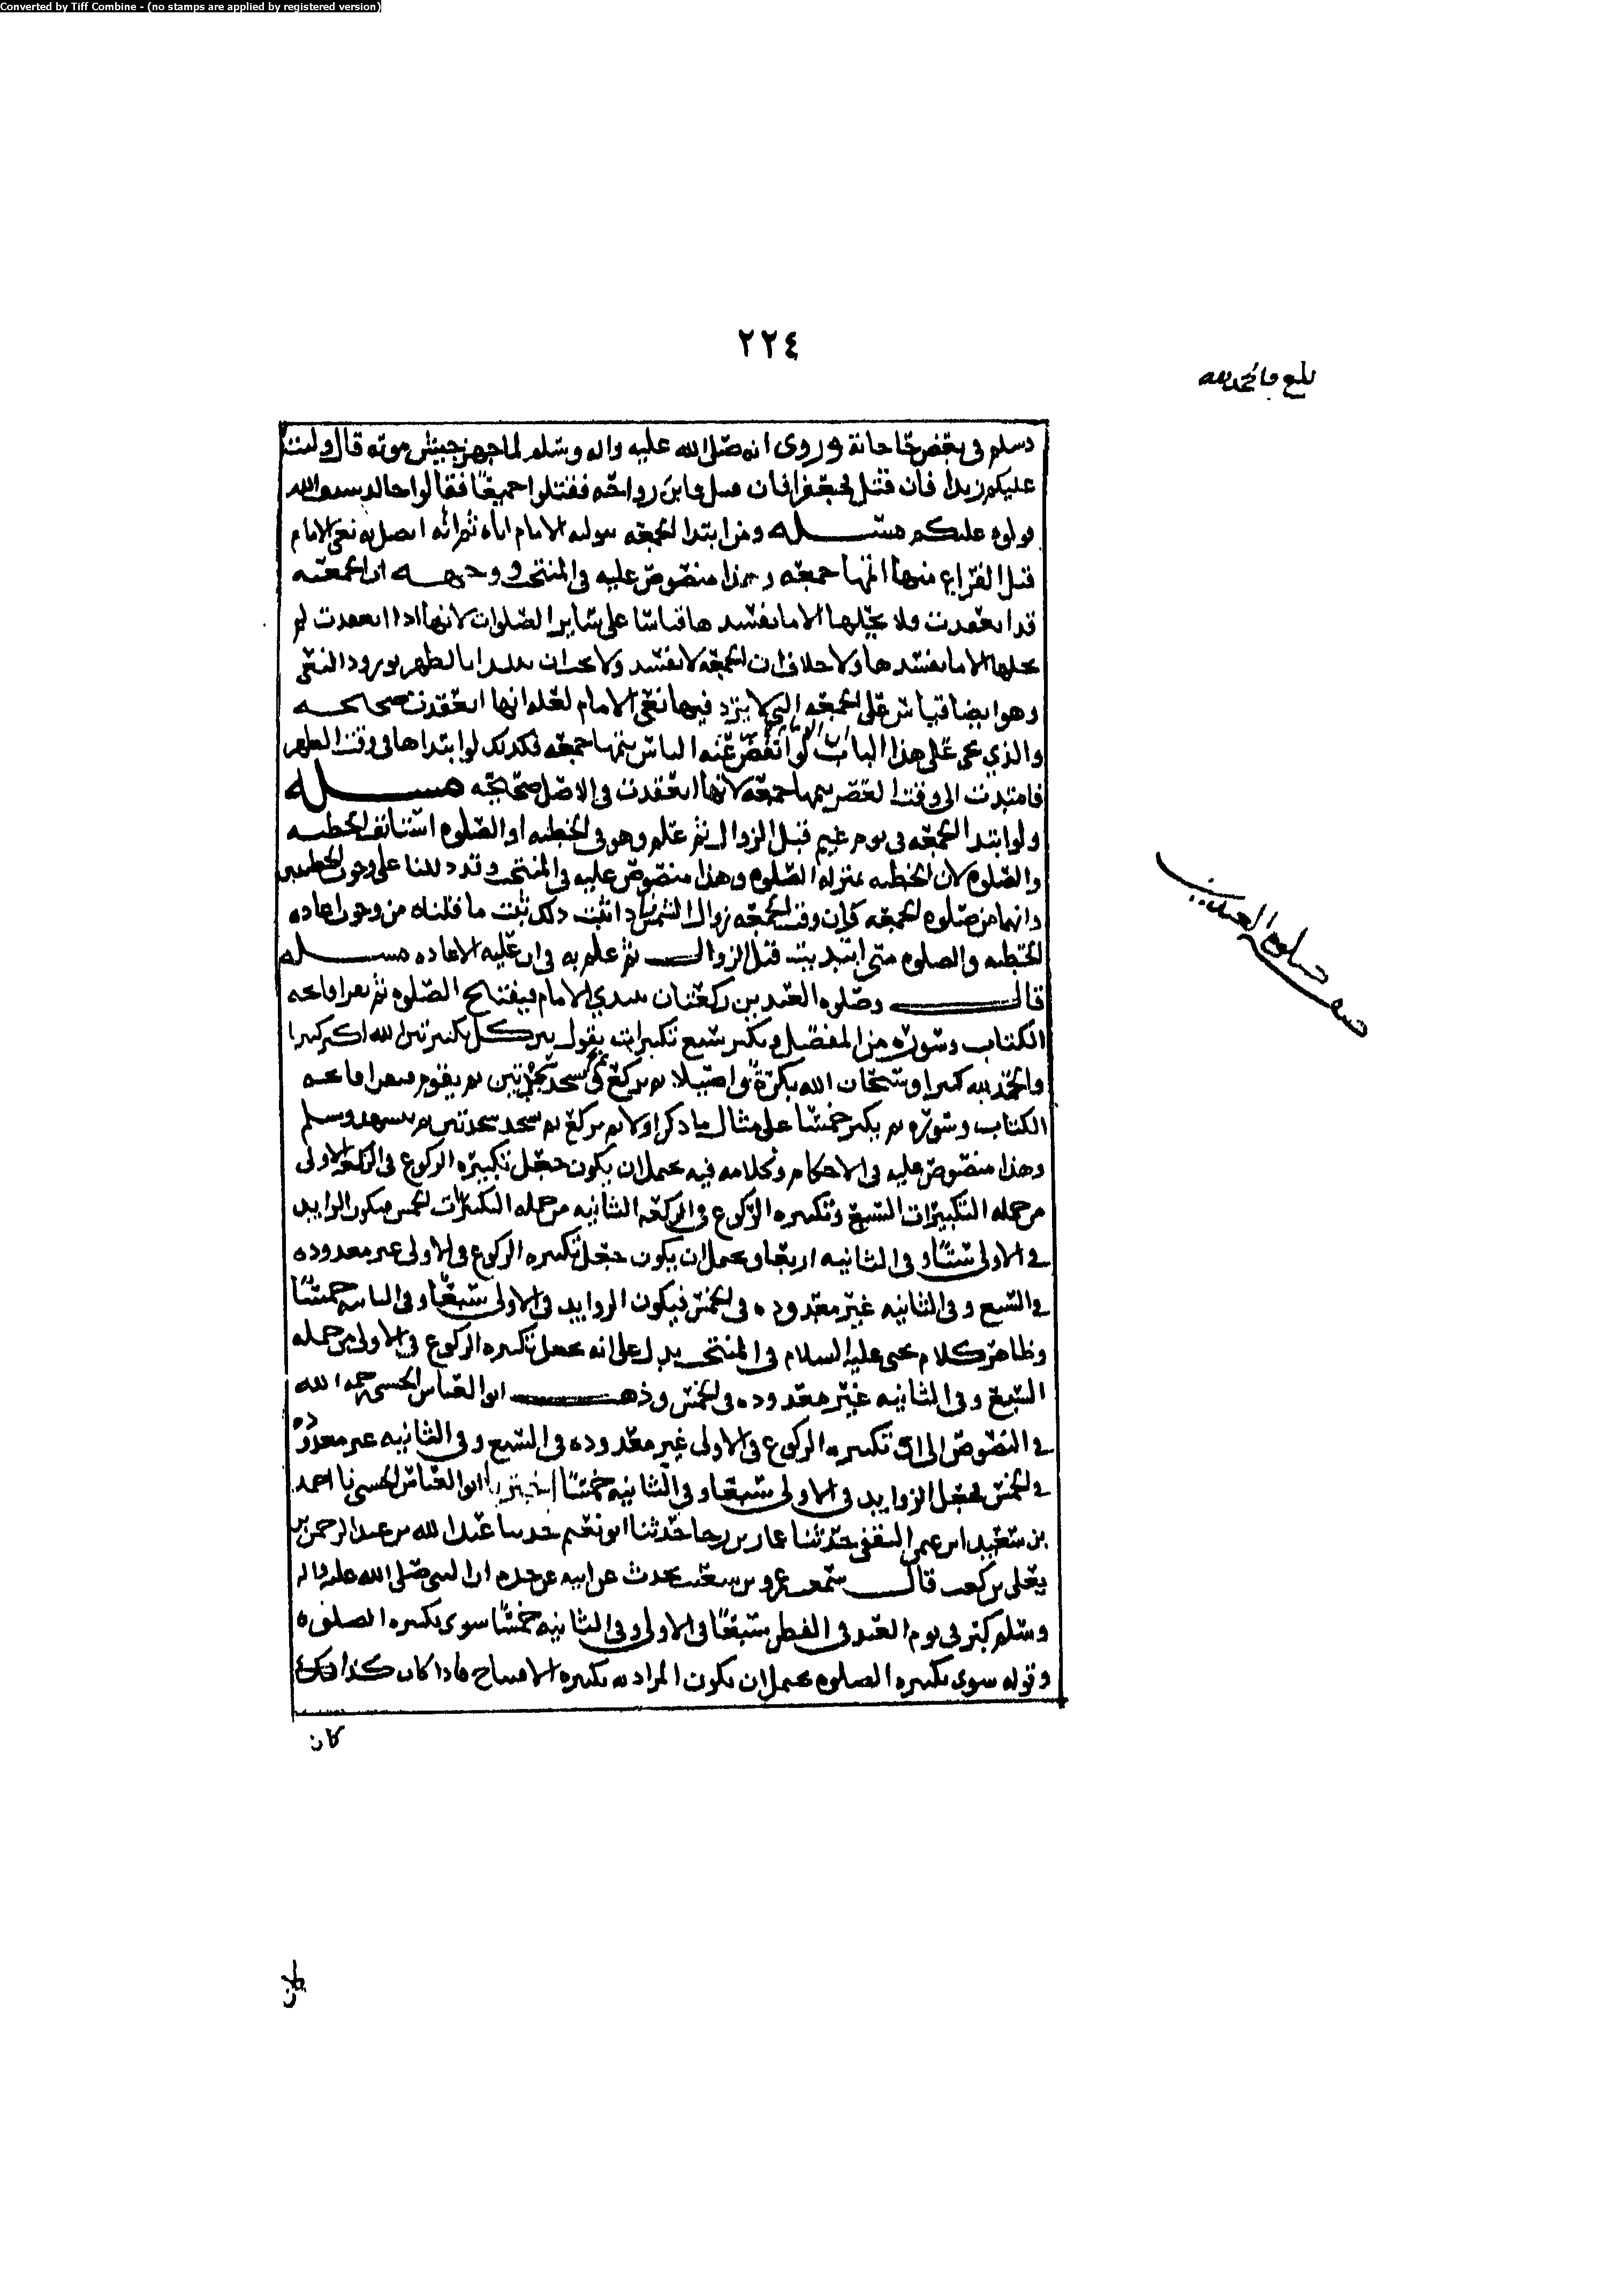 Converted by Tiff Combine - (no stamps are applied by registered version)
٢٢٤
بلغ والحمد لله
وسلم في بعض حاجاته وروى انه صلى الله عليه واله وسلم لما جهز جيش موته قال وليت
عليكم زيدا فان قتل فجعفرا فان قتل فابن رواحه فقتلوا جميعا فقالوا خالد سيف الله
فولوه عليكم مسله ومن ابتدا الجمعه بتوليه الامام اياه ثم انه اتصل به نعي الامام
قبل الفراغ منها اتمها جمعه وهذا منصوص عليه في المنتخب ووجهه ان الجمعه
قد انعقدت ولا يبطلها الا ما يفسدها قياسا على ساير الصلوات لانها اذا انعقدت لم
يبطلها الا ما يفسدها ولا خلاف ان الجمعه لا تفسد ولا يجب ان بالظهر بورود النعي
وهو ايضا قياس على الجمعه التي لا يرد فيها نعي الامام لعله انها انعقدت صحيحه
والذي يجي على هذا الباب لو انفض عنه الناس يتمها جمعه فكذلك لو ابتداها في وقت الظهر
فامتدت الى وقت العصر يتمها جمعه لانها انعقدت في الاصل صحيحه مسله
ولو ابتدا الجمعه في يوم غيم قبل الزوال ثم علم وهو في الخطبه او الصلوه استانف الخطبه
والصلوه لان الخطبه بمنزله الصلوه وهذا منصوص عليه في المنتخب وقد دللنا على وجوب الخطبتين
وانهما من صلوه الجمعه وان وقت الجمعه زوال الشمس واذا ثبت ذلك ثبت ما قلناه من وجوب اعاده
الخطبه والصلوه متى ابتديت قبل الزوال ثم علم به وان عليه الاعاده مسله
قال وصلوه العيدين ركعتان يبتدي الامام فيفتتح الصلوه ثم يقرا فاتحه
الكتاب وسوره من المفصل ويكبر سبع تكبيرات يقول بين كل تكبيرتين الله اكبر كبيرا
والحمد لله كثيرا وسبحان الله بكرة واصيلا ثم يركع ثم يسجد سجدتين ثم يقوم فيقرا فاتحه
الكتاب وسوره ثم يكبر خمسا على مثال ما ذكر اولا ثم يركع ثم يسجد سجدتين ثم يتشهد ويسلم
وهذا منصوص عليه في الاحكام وكلامه فيه يحتمل ان يكون جعل تكبيره الركوع في الركعه الاولى
من جمله التكبيرات السبع وتكبيره الركوع في الركعه الثانيه من جمله التكبيرات الخمس فيكون الزوايد
في الاولى ستا وفي الثانيه اربعا ويحتمل ان يكون جعل تكبيره الركوع في الاولى غير معدوده
في السبع وفي الثانيه غير معدوده في الخمس فيكون الزوايد في الاولى سبعا وفي الثانيه خمسا
وظاهر كلام يحيى عليه السلام في المنتخب يدل على انه يجعل تكبيره الركوع في الاولى من جمله
السبع وفي الثانيه غير معدوده في الخمس وذهب ابو العباس الحسني رحمه الله
في النصوص الى ان تكبيره الركوع في الاولى غير معدوده في السبع وفي الثانيه غير معدوده
في الخمس فجعل الزوايد في الاولى سبعا وفي الثانيه خمسا اخبرنا ابو العباس الحسني نا احمد
بن سعيد ابن عمر الثقفي حدثنا عمار بن رجا حدثنا ابو نعيم حدثنا عبد الله بن عبد الرحمن بن
يعلى بن كعب قال سمعت عمرو بن شعيب يحدث عن ابيه عن جده ان النبي صلى الله عليه واله
وسلم كبر في يوم العيد في الفطر سبعا في الاولى وفي الثانيه خمسا سوى تكبيره الصلوه
وقوله سوى تكبيره الصلوه يحتمل ان يكون المراد به تكبيره الافتتاح فاذا كان كذلك
كان
صلوه العيدين